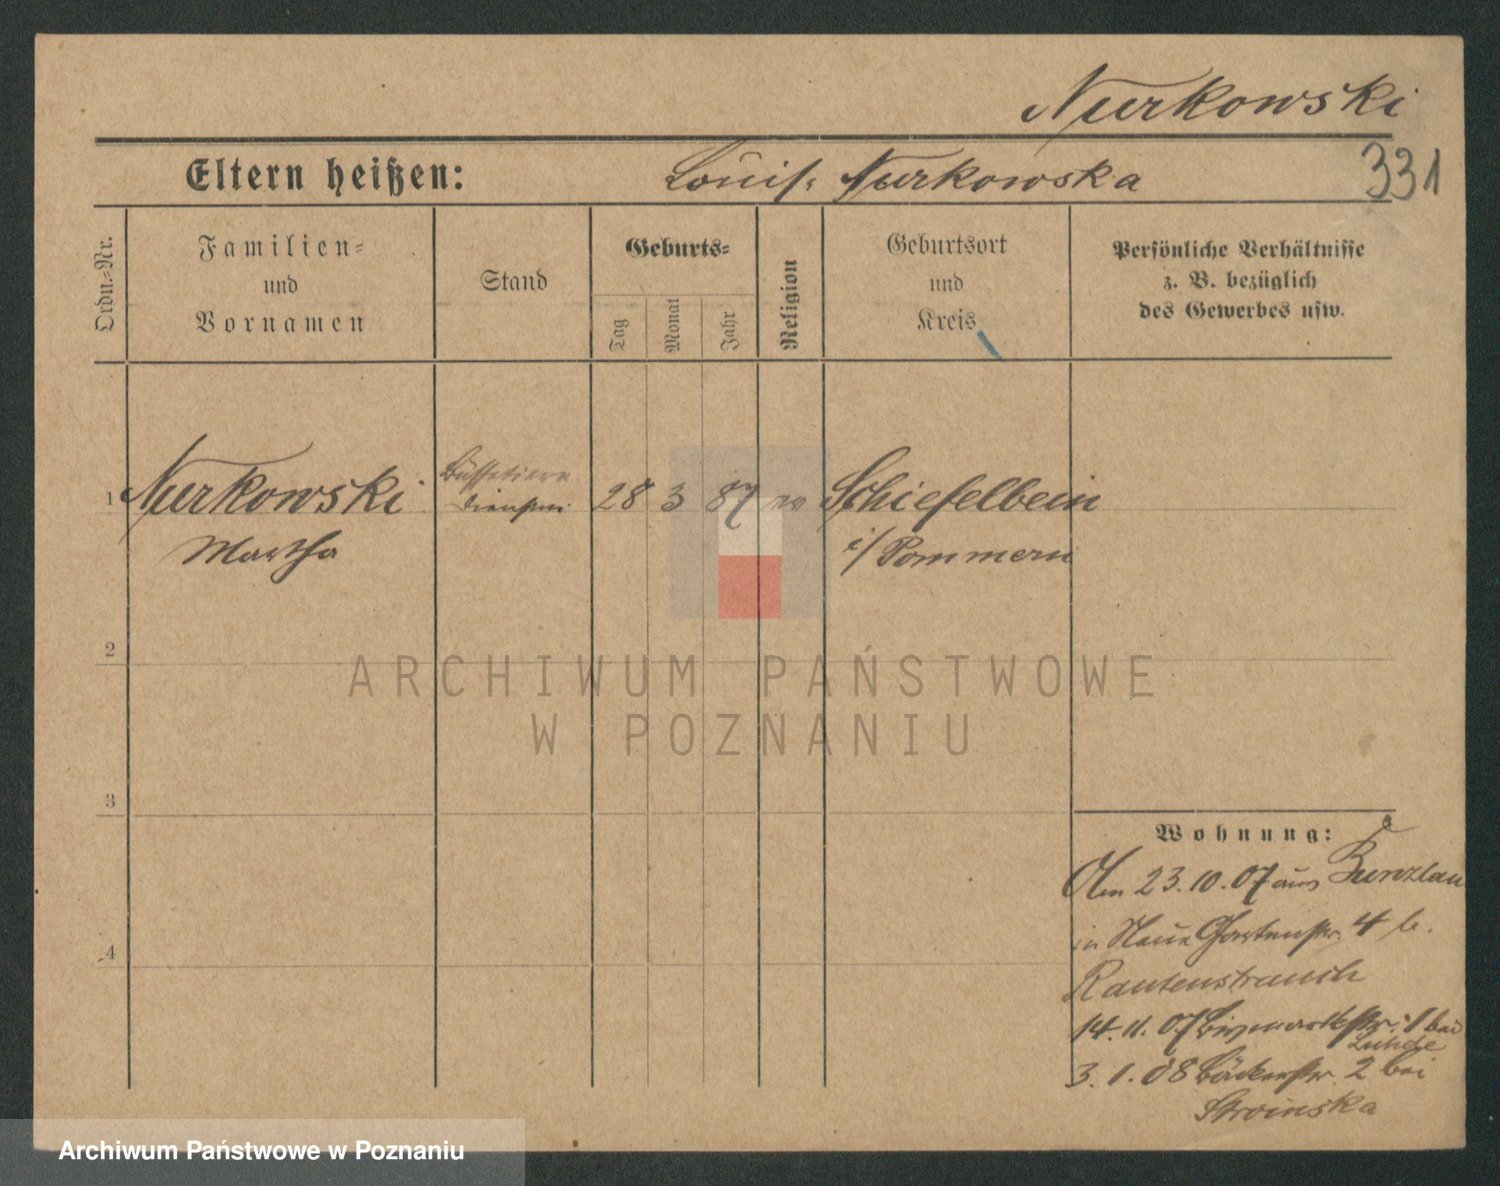 Nurkowski
Eltern heißen: Louis Nurkowska
331
Ordn.=Nr.
Familien=
und
Vornamen
Stand
Geburts=
Tag
Monat
Jahr
Religion
Geburtsort
und
Kreis
Persönliche Verhältnisse
z. B. bezüglich
des Gewerbes usw.
1 Nurkowski 28 3 87 Schiefelbein
Martha i/ Pommern
2
3
4
Wohnung:
Am 23.10.07 aus Bunzlau
in Neue Gartenstr. 4 b.
Rautenstrauch
14.11.07 Bismarckstr. 1 bei
3.1.08 Bäckerstr. 2 bei
Stroinska
ARCHIWUM PAŃSTWOWE
W POZNANIU
Archiwum Państwowe w Poznaniu